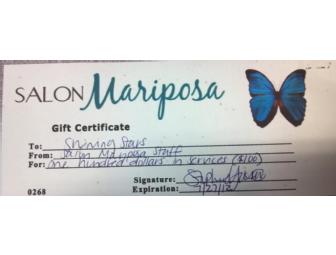 SALON Mariposa
Gift Certificate
To: Shining Stars
From: Salon Mariposa Staff
For: One hundred dollars in services ($100)
Signature:
0268 Expiration: 7/27/12